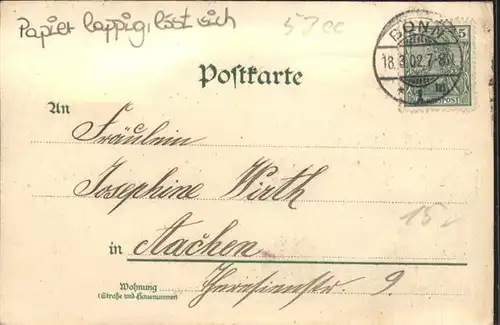 Papier lappig, löst sich
BONN
18.3.02.7-8V.
* 1 m
5
Postkarte
An
Fräulein
Josephine Wirth
152
in Aachen
Wohnung
(Straße und Hausnummer)
Theresienstr. 9.